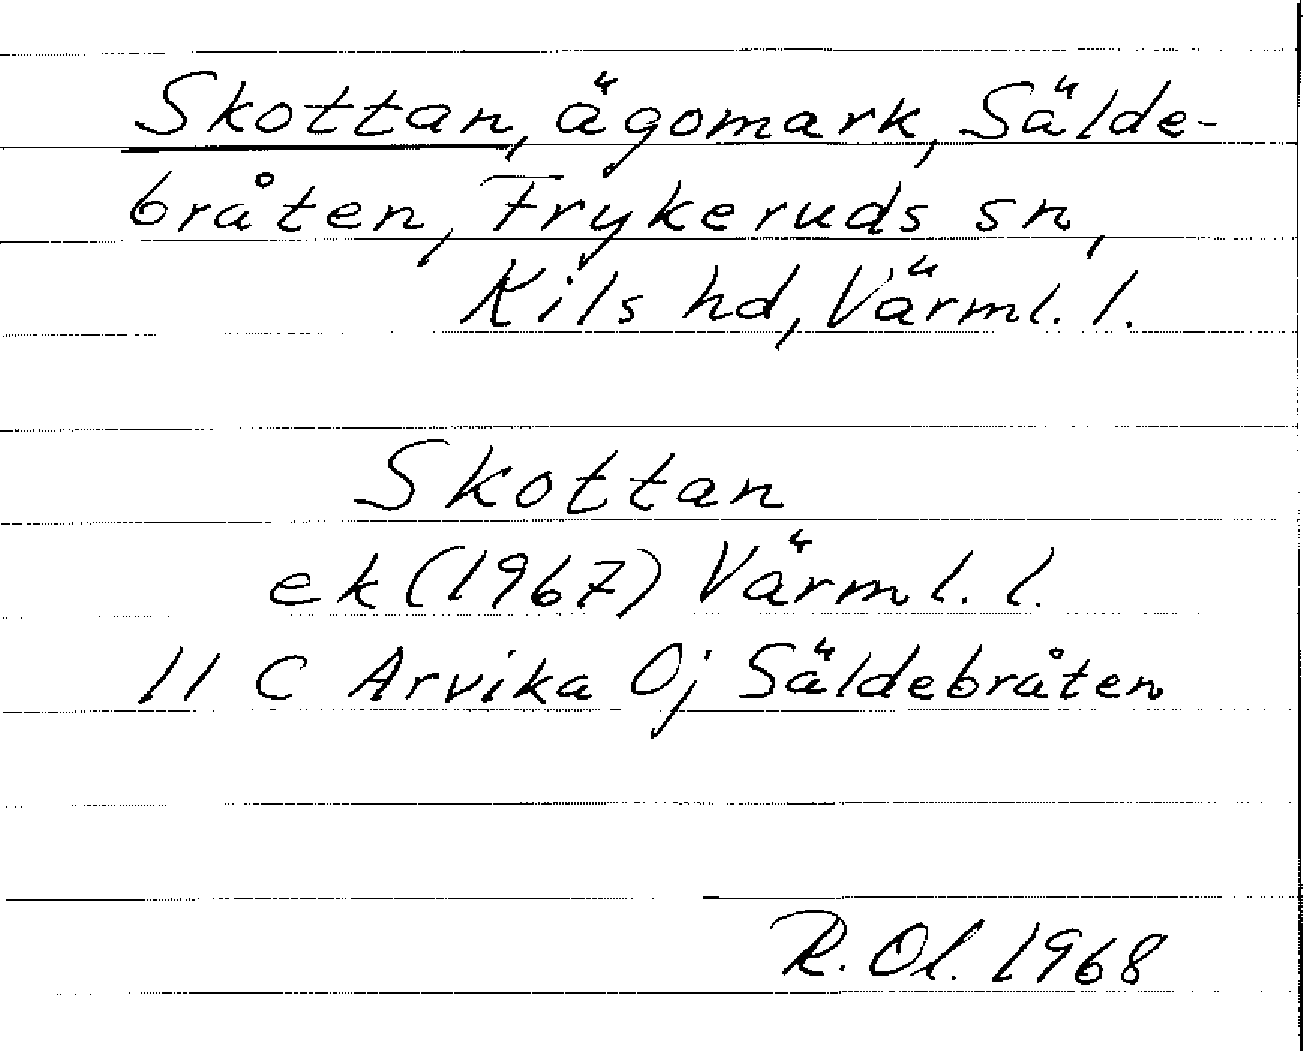 Skottan, ägomark, Sälde-
bråten, Frykeruds sn,
Kils hd, Värml. l.
Skottan
ek (1967) Värml. l.
11 C Arvika 0j Säldebråten
R. Ol. 1968